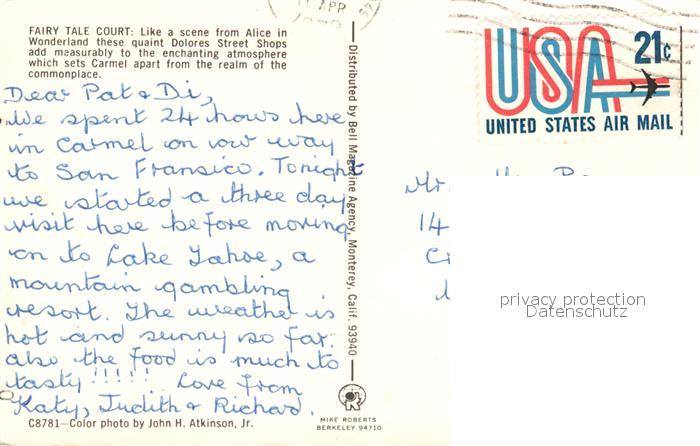 FAIRY TALE COURT: Like a scene from Alice in
Wonderland these quaint Dolores Street Shops
add measurably to the enchanting atmosphere
which sets Carmel apart from the realm of the
commonplace.
Dear Pat & Di,
We spent 24 hours here
in Carmel on our way
to San Fransico. Tonight
we started a three day
visit here before moving
on to Lake Tahoe, a
mountain gambling
resort. The weather is
hot and sunny so far.
also the food is much to
tasty!!!!! Love from
Katy, Judith & Richard.
C8781—Color photo by John H. Atkinson, Jr.
Distributed by Bell Magazine Agency, Monterey, Calif. 93940
MIKE ROBERTS
BERKELEY 94710
APR
USA 21c
UNITED STATES AIR MAIL
Mr.
14
privacy protection
Datenschutz